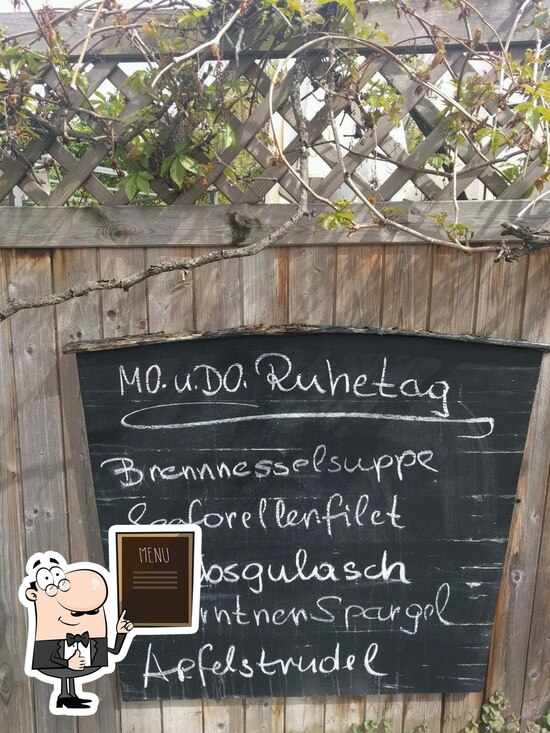 MO. u. DO. Ruhetag
Brennnesselsuppe
Seeforellenfilet
MENU
osgulasch
rntner Spargel
Apfelstrudel